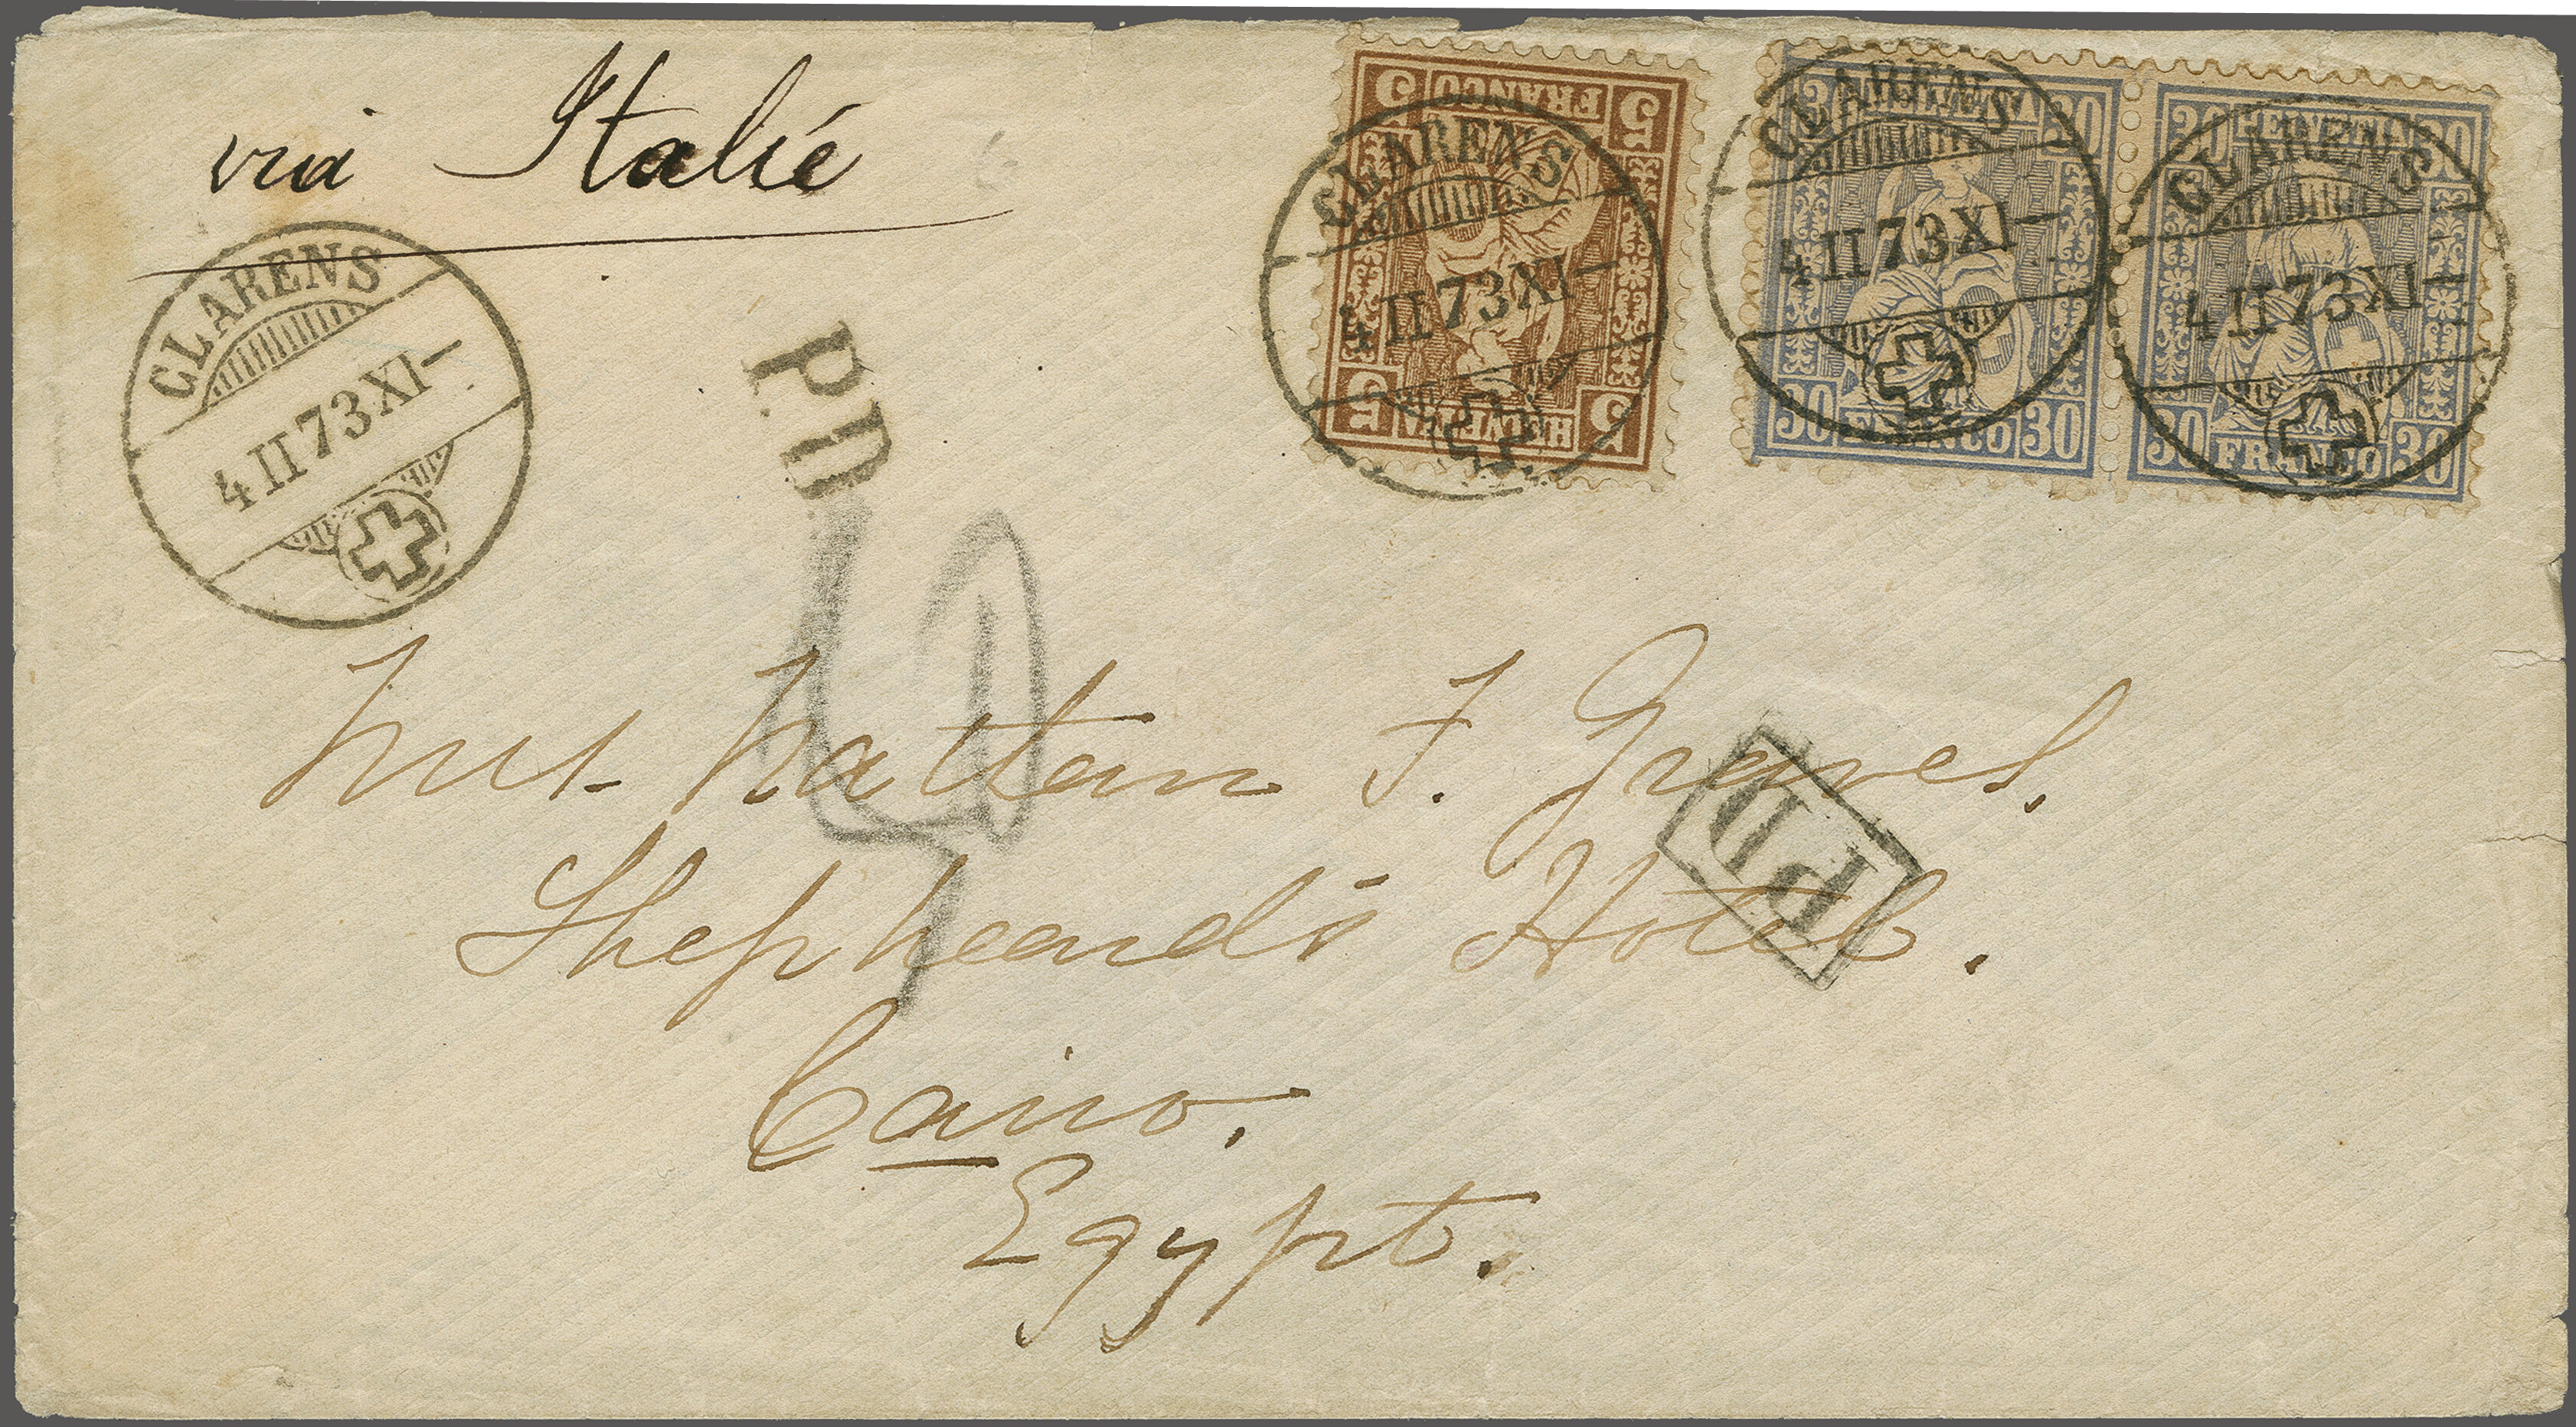 via Italié
5 FRANCO 5
5 HELVETIA 5
CLARENS
4 II 73 XI-
30 HELVETIA 30
30 FRANCO 30
CLARENS
4 II 73 XI-
30 HELVETIA 30
30 FRANCO 30
CLARENS
4 II 73 XI-
CLARENS
4 II 73 XI-
P.D.
F. Graves.
PD
Shepheard's Hotel.
Cairo.
Egypt.